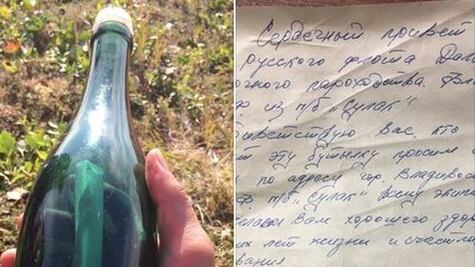 Сердечный привет
русского флота Даль
очного пароходства.
из п/б "Сулак"
ветствую Вас, кто
эту бутылку просим
по адресу гор. Владивос
п/б "Сулак" всему экипа
Вам хорошего здор
их лет жизни и счастли
вания